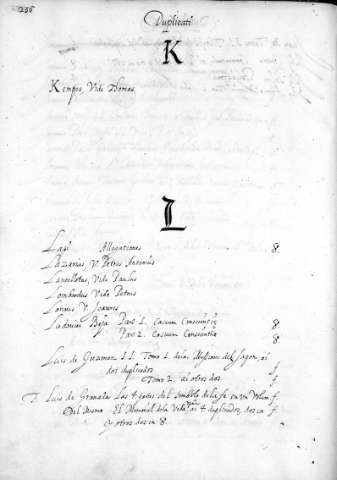 236
Duplicati
K
Kempis, Vide Thomas.
L
Lapi Allegationes 8.
Lazarius, V. Petrus Antonius
Lancellotus, Vide Paulus
Lombardus Vide Petrus
Lorinus V. Joannes
Ludovicus Beja Pars 1. Casuum Conscientiæ 8
Pars 2. Casuum Conscientiæ 8
Luis de Guzman S.I. Tomo 1. de las Missiones del Japon, ai
dos duplicados f
Tomo 2. ai otros dos f
T. Luis de Granada Las 4 partes del Simbolo de la fe en un Volum. f
Del mismo El Memorial de la Vida ai 4 duplicados, dos en f
y otros dos en 8.